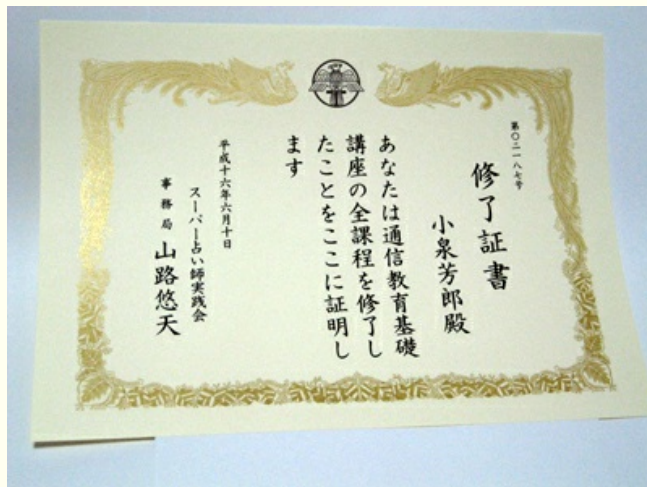 第〇二一八七号
修了証書
小泉芳郎殿
あなたは通信教育基礎
講座の全課程を修了し
たことをここに証明し
ます
平成十六年六月十日
スーパー占い師実践会
事務局 山路悠天